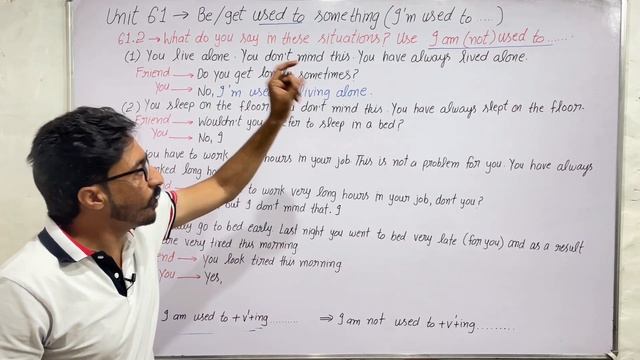 Unit 61 → Be/get used to something (I'm used to ....)
61.2 → What do you say in these situations? Use I am (not) used to .......
(1) You live alone. You don't mind this. You have always lived alone.
Friend → Do you get sometimes?
You → No, I'm living alone.
(2) You sleep on the floor. You don't mind this. You have always slept on the floor.
Friend → Wouldn't you to sleep in a bed?
You → No, I
you have to work hours in your job This is not a problem for you. You have always
long
to work very long hours in your job, don't you?
but I don't mind that. I
go to bed early. Last night you went to bed very late (for you) and as a result
very tired this morning
→ You look tired this morning
You → Yes,
I am used to + v'+ing ......... ⇒ I am not used to + v'+ing .........